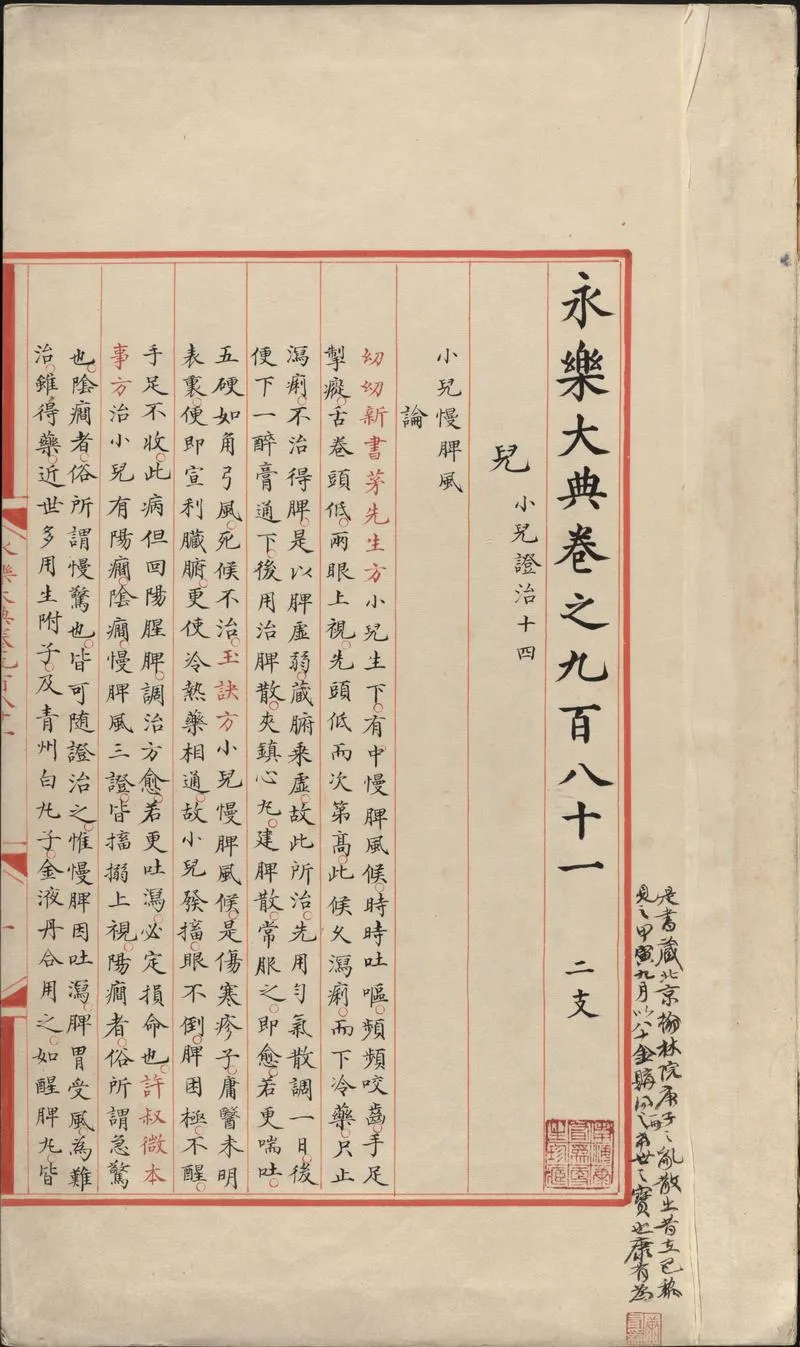 是書藏北京翰林院庚子之亂散出昔在巴黎
見之甲寅九月以八十金購希世之寶也康有為
永樂大典卷之九百八十一 二支
兒 小兒證治十四
小兒慢脾風
論
幼幼新書茅先生方小兒生下。有中慢脾風候。時時吐嘔。頻頻咬齒。手足
掣瘲。舌卷頭低。兩眼上視。先頭低而次第高。此候久瀉痢。而下冷藥。只止
瀉痢。不治得脾。是以脾虛弱。藏腑乘虛。故此所治。先用勻氣散調一日。後
便下一醉膏通下。後用治脾散。夾鎮心丸。建脾散。常服之。即愈。若更喘吐。
五硬如角弓風。死候不治。玉訣方小兒慢脾風候。是傷寒疹子。庸醫未明
表裏。便即宣利臟腑。更使冷熱藥相通。故小兒發搐。眼不倒。脾困極。不醒。
手足不收。此病但回陽腥脾。調治方愈。若更吐瀉。必定損命也。許叔微本
事方治小兒有陽癎。陰癎。慢脾風三證。皆搐搦上視。陽癎者。俗所謂急驚
也。陰癎者。俗所謂慢驚也。皆可隨證治之。惟慢脾因吐瀉。脾胃受風。為難
治。雖得藥。近世多用生附子。及青州白丸子。金液丹合用之。如醒脾丸。皆
永樂大典卷九百八十一
一